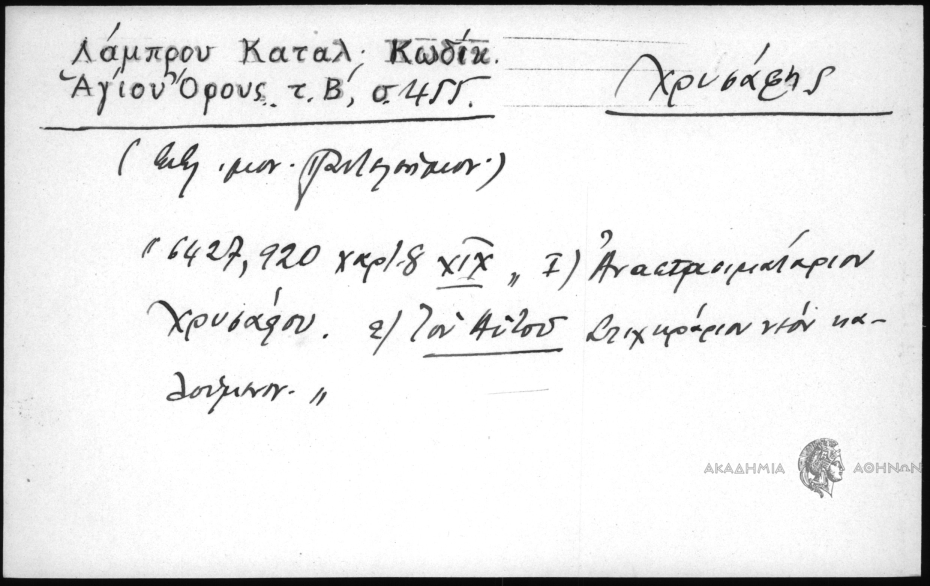 Λάμπρου Καταλ. Κωδίκ.
Ἁγίου Ὄρους. τ. Β΄, σ. 455.
Χρυσάφης
(Βιβλ. μον. Παντελεήμον.)
"6427, 920 χαρτ. 8 XIX „ I) Ἀναστασιματάριον
Χρυσάφου. 2) Τοῦ Αὐτοῦ Στιχηράριον νέον κα-
λούμενον. „
ΑΚΑΔΗΜΙΑ ΑΘΗΝΩΝ